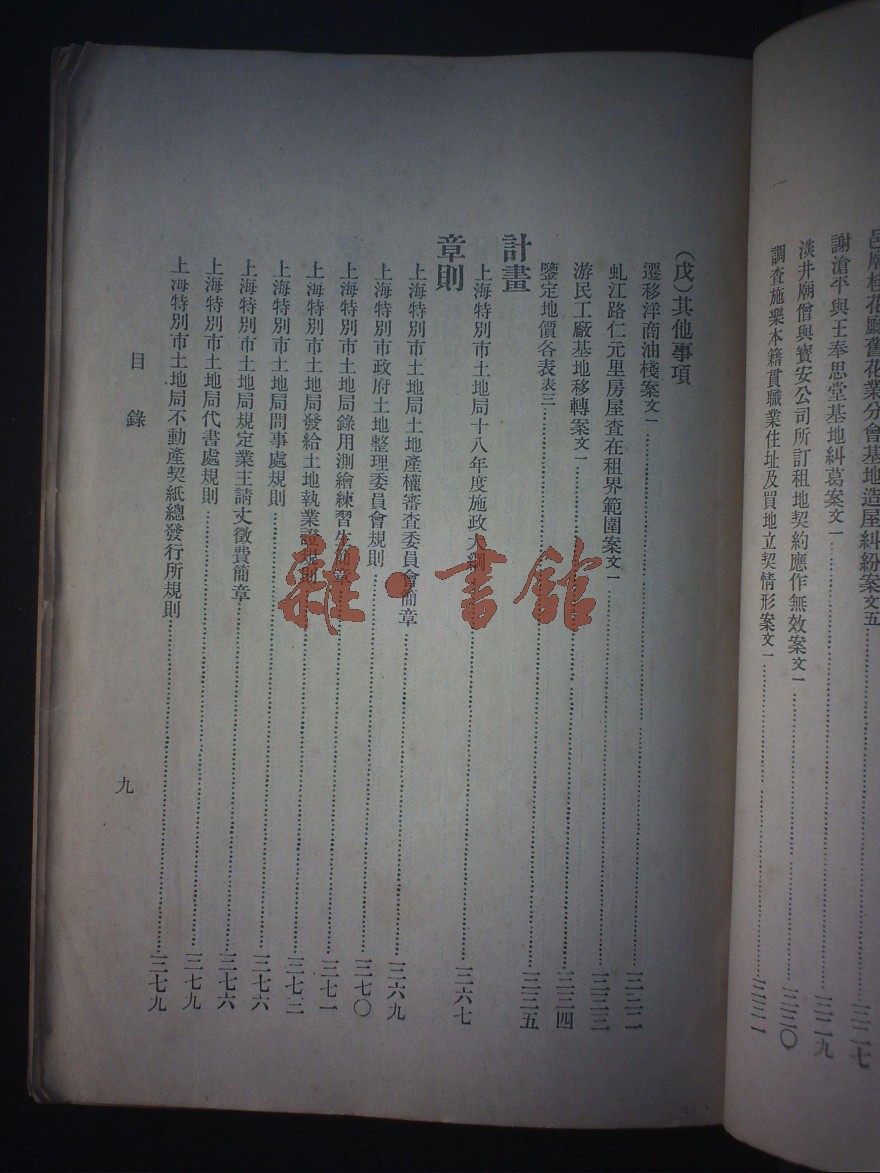 邑廟桂花廳舊花業分會基地造屋糾紛案文五……三二七
謝滄平與王奉思堂基地糾葛案文一……三二九
淡井廟僧與寶安公司所訂租地契約應作無效案文一……三三〇
調查施樂本籍貫職業住址及買地立契情形案文一……三三一
(戊)其他事項
遷移洋商油棧案文一……三三二
虬江路仁元里房屋查在租界範圍案文一……三三三
游民工廠基地移轉案文一……三三四
鑒定地價各表表三……三三五
計畫
上海特別市土地局十八年度施政大綱……三六七
章則
上海特別市土地局土地產權審查委員會簡章……三六九
上海特別市政府土地整理委員會規則……三七〇
上海特別市土地局錄用測繪練習生簡章……三七一
上海特別市土地局發給土地執業證規則……三七二
上海特別市土地局問事處規則……三七六
上海特別市土地局規定業主請丈徵費簡章……三七六
上海特別市土地局代書處規則……三七九
上海特別市土地局不動產契紙總發行所規則……三七九
目錄
九
雜·書館